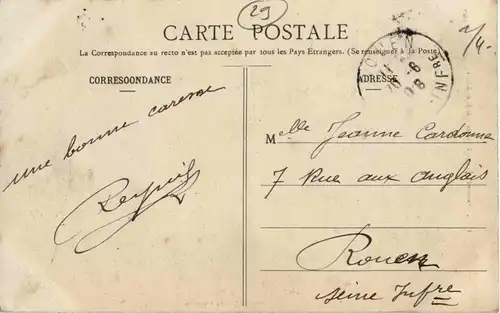 29
CARTE POSTALE
La Correspondance au recto n'est pas acceptée par tous les Pays Étrangers. (Se renseigner à la Poste)
CORRESOONDANCE
ADRESSE
une bonne caresse
Melle Jeanne Cardonne
7 Rue aux anglais
Rouen
Seine Infre